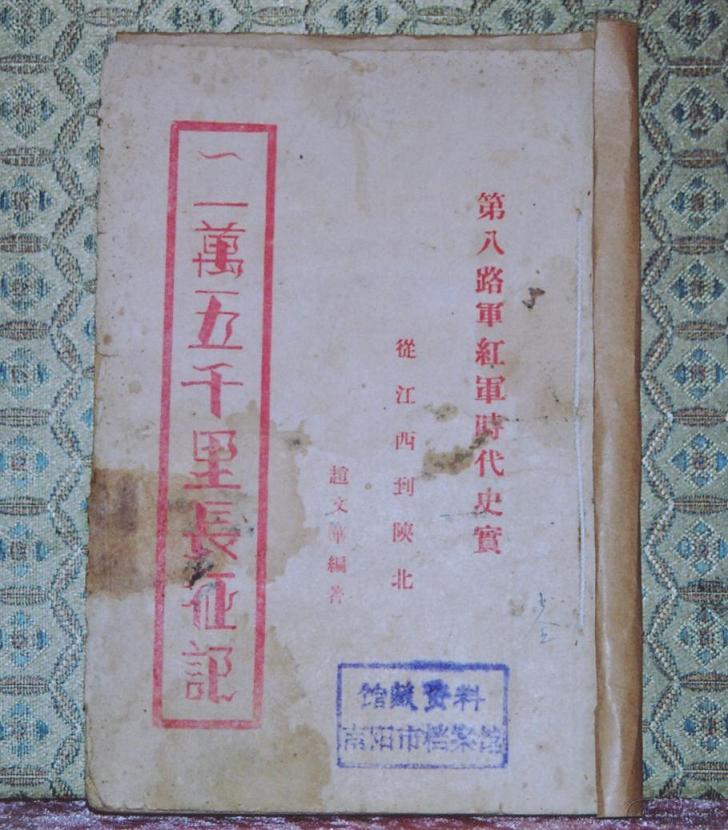 第八路軍紅軍時代史實
從江西到陝北
趙文華編著
二萬五千里長征記
馆藏资料
南阳市档案馆